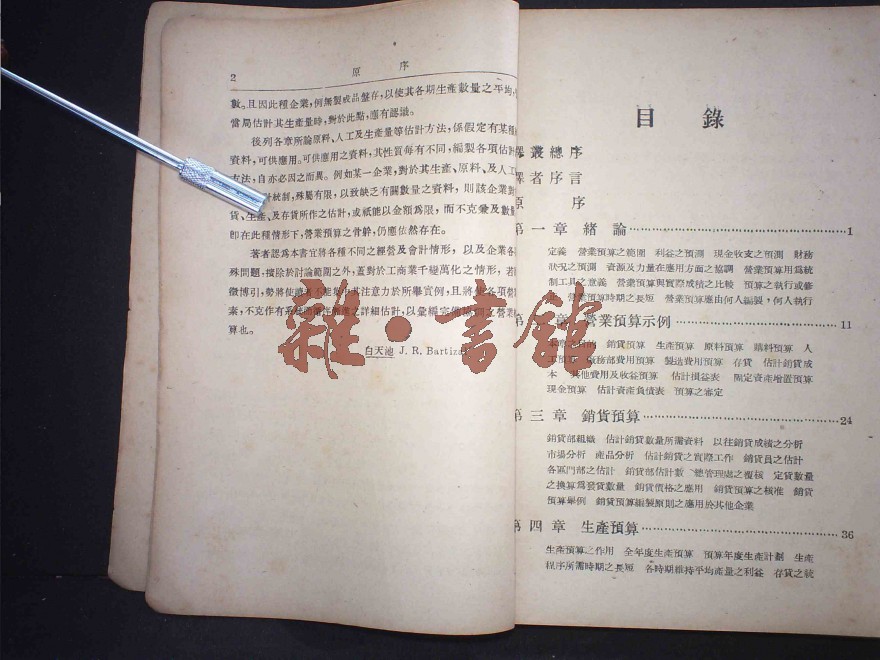 2
原 序
數。且因此種企業,例無製成品盤存,以使其各期生產數量之平均,
當局估計其生產量時,對於此點,應有認識。
後列各章所論原料、人工及生產量等估計方法,係假定有某種
資料,可供應用。可供應用之資料,其性質每有不同,編製各項估計
方法,自亦必因之而異。例如某一企業,對於其生產、原料、及人工
計統制,殊屬有限,以致缺乏有關數量之資料,則該企業對
貨、生產、及存貨所作之估計,或祇能以金額爲限,而不克兼及數量
即在此種情形下,營業預算之骨幹,仍應依然存在。
著者認爲本書宜將各種不同之經營及會計情形,以及企業各
殊問題,擯除於討論範圍之外,蓋對於工商業千變萬化之情形,若
徵博引,勢將使讀者不能集中其注意力於所舉實例,且將使各項
素,不克作有系統 詳細估計,以彙編完備 之營業
算也。
白天池 J. R. Bartiza
目 錄
叢總序
譯者序言
原 序
第一章 緒論 1
定義 營業預算之範圍 利益之預測 現金收支之預測 財務
狀況之預測 資源及力量在應用方面之協調 營業預算用爲統
制工具之意義 營業預算與實際成績之比較 預算之執行或修
正 營業預算時期之長短 營業預算應由何人編製,何人執行
第 章 營業預算示例 11
本章之目的 銷貨預算 生產預算 原料預算 購料預算 人
工預算 廠務部費用預算 製造費用預算 存貨 估計銷貨成
本 其他費用及收益預算 估計損益表 固定資產增置預算
現金預算 估計資產負債表 預算之審定
第三章 銷貨預算 24
銷貨部組織 估計銷貨數量所需資料 以往銷貨成績之分析
市場分析 產品分析 估計銷貨之實際工作 銷貨員之估計
各區門部之估計 銷貨部估計數 總管理處之覆核 定貨數量
之換算爲發貨數量 銷貨價格之應用 銷貨預算之核准 銷貨
預算舉例 銷貨預算編製原則之應用於其他企業
第四章 生產預算 36
生產預算之作用 全年度生產預算 預算年度生產計劃 生產
程序所需時期之長短 各時期維持平均產量之利益 存貨之統
雜·書館